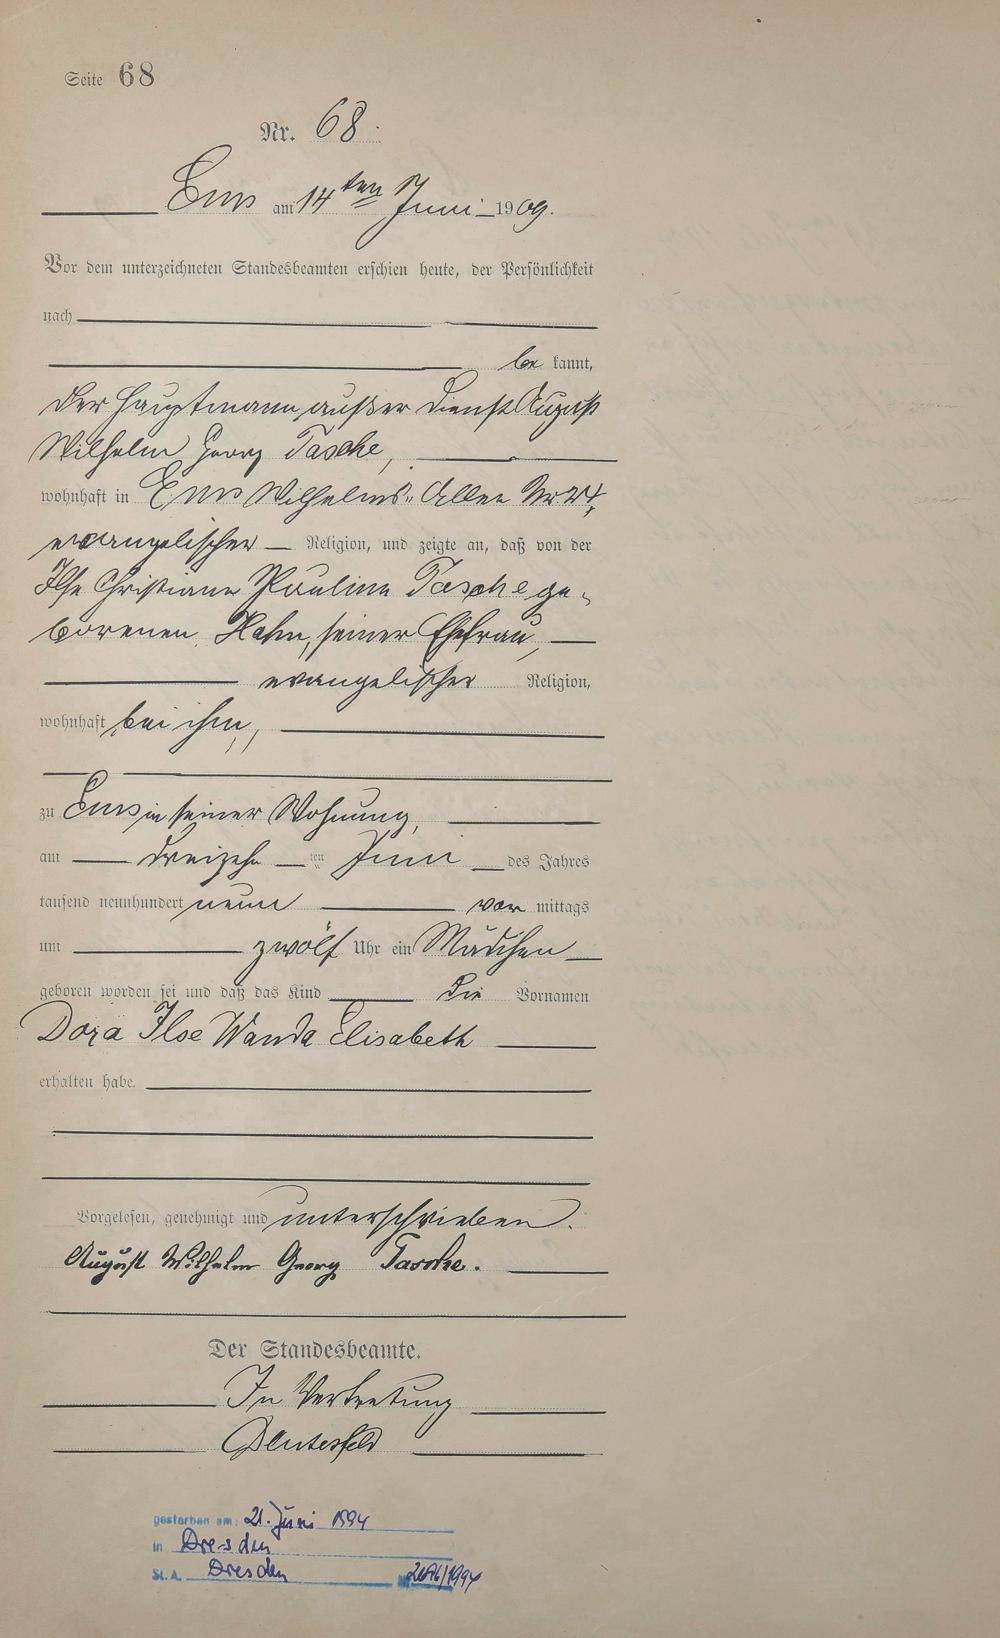 Seite 68
Nr. 68.
Ems am 14ten Juni 1909.
Vor dem unterzeichneten Standesbeamten erschien heute, der Persönlichkeit
nach
be kannt,
der Hauptmann außer Dienst August
Wilhelm Georg Tasche,
wohnhaft in Ems Wilhelms-Allee Nr 24,
evangelischer Religion, und zeigte an, daß von der
Ilse Christiane Pauline Tasche ge-
borenen Hahn, seiner Ehefrau,
evangelischer Religion,
wohnhaft bei ihm,
zu Ems in seiner Wohnung,
am dreizehn ten Juni des Jahres
tausend neunhundert neun vor mittags
um zwölf Uhr ein Mädchen
geboren worden sei und daß das Kind die Vornamen
Dora Ilse Wanda Elisabeth
erhalten habe.
Vorgelesen, genehmigt und unterschrieben.
August Wilhelm Georg Tasche.
Der Standesbeamte.
In Vertretung
gestorben am: 21. Juni 1994
in Dresden
St. A. Dresden